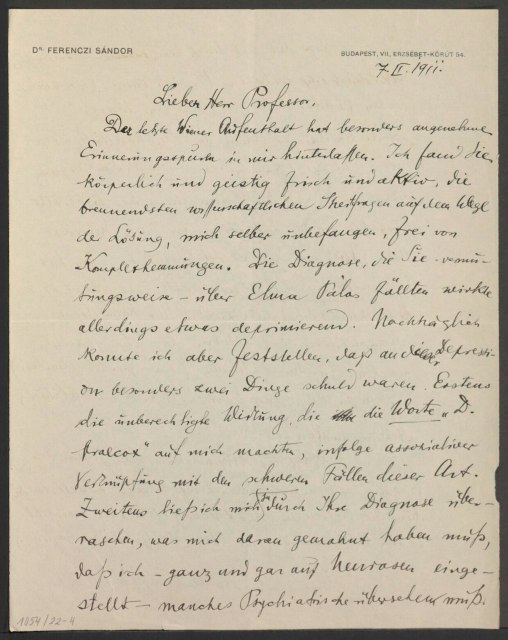 Dr. FERENCZI SÁNDOR
BUDAPEST, VII., ERZSÉBET-KÖRÚT 54.
7. II. 1911.
Lieber Herr Professor,
Der letzte Wiener Aufenthalt hat besonders angenehme
Erinnerungsspuren in mir hinterlassen. Ich fand Sie
körperlich und geistig frisch und aktiv, die
brennendsten wissenschaftlichen Streitfragen auf dem Wege
der Lösung, mich selber unbefangen, frei von
Komplexhemmungen. Die Diagnose, die Sie - vermu-
tungsweise - über Elma Pálos fällten wirkte
allerdings etwas deprimierend. Nachträglich
konnte ich aber feststellen, daß an dieser Depressi-
on besonders zwei Dinge schuld waren. Erstens
die unberechtigte Wirkung, die die Worte „D.
Praecox" auf mich machten, infolge assoziativer
Verknüpfung mit den schweren Fällen dieser Art.
Zweitens ließ ich mich durch Ihre Diagnose über-
raschen, was mich daran gemahnt haben muß,
daß ich - ganz und gar auf Neurosen einge-
stellt - manches Psychiatrische übersehen muß.
1054/22-4